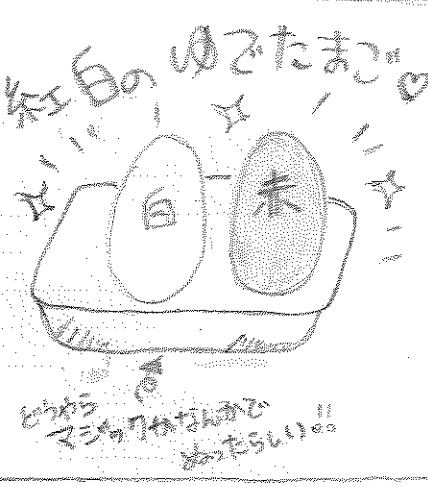 紅白のゆでたまご♡
白
赤
どうやら
マジックかなんかで
ぬったらしい!!